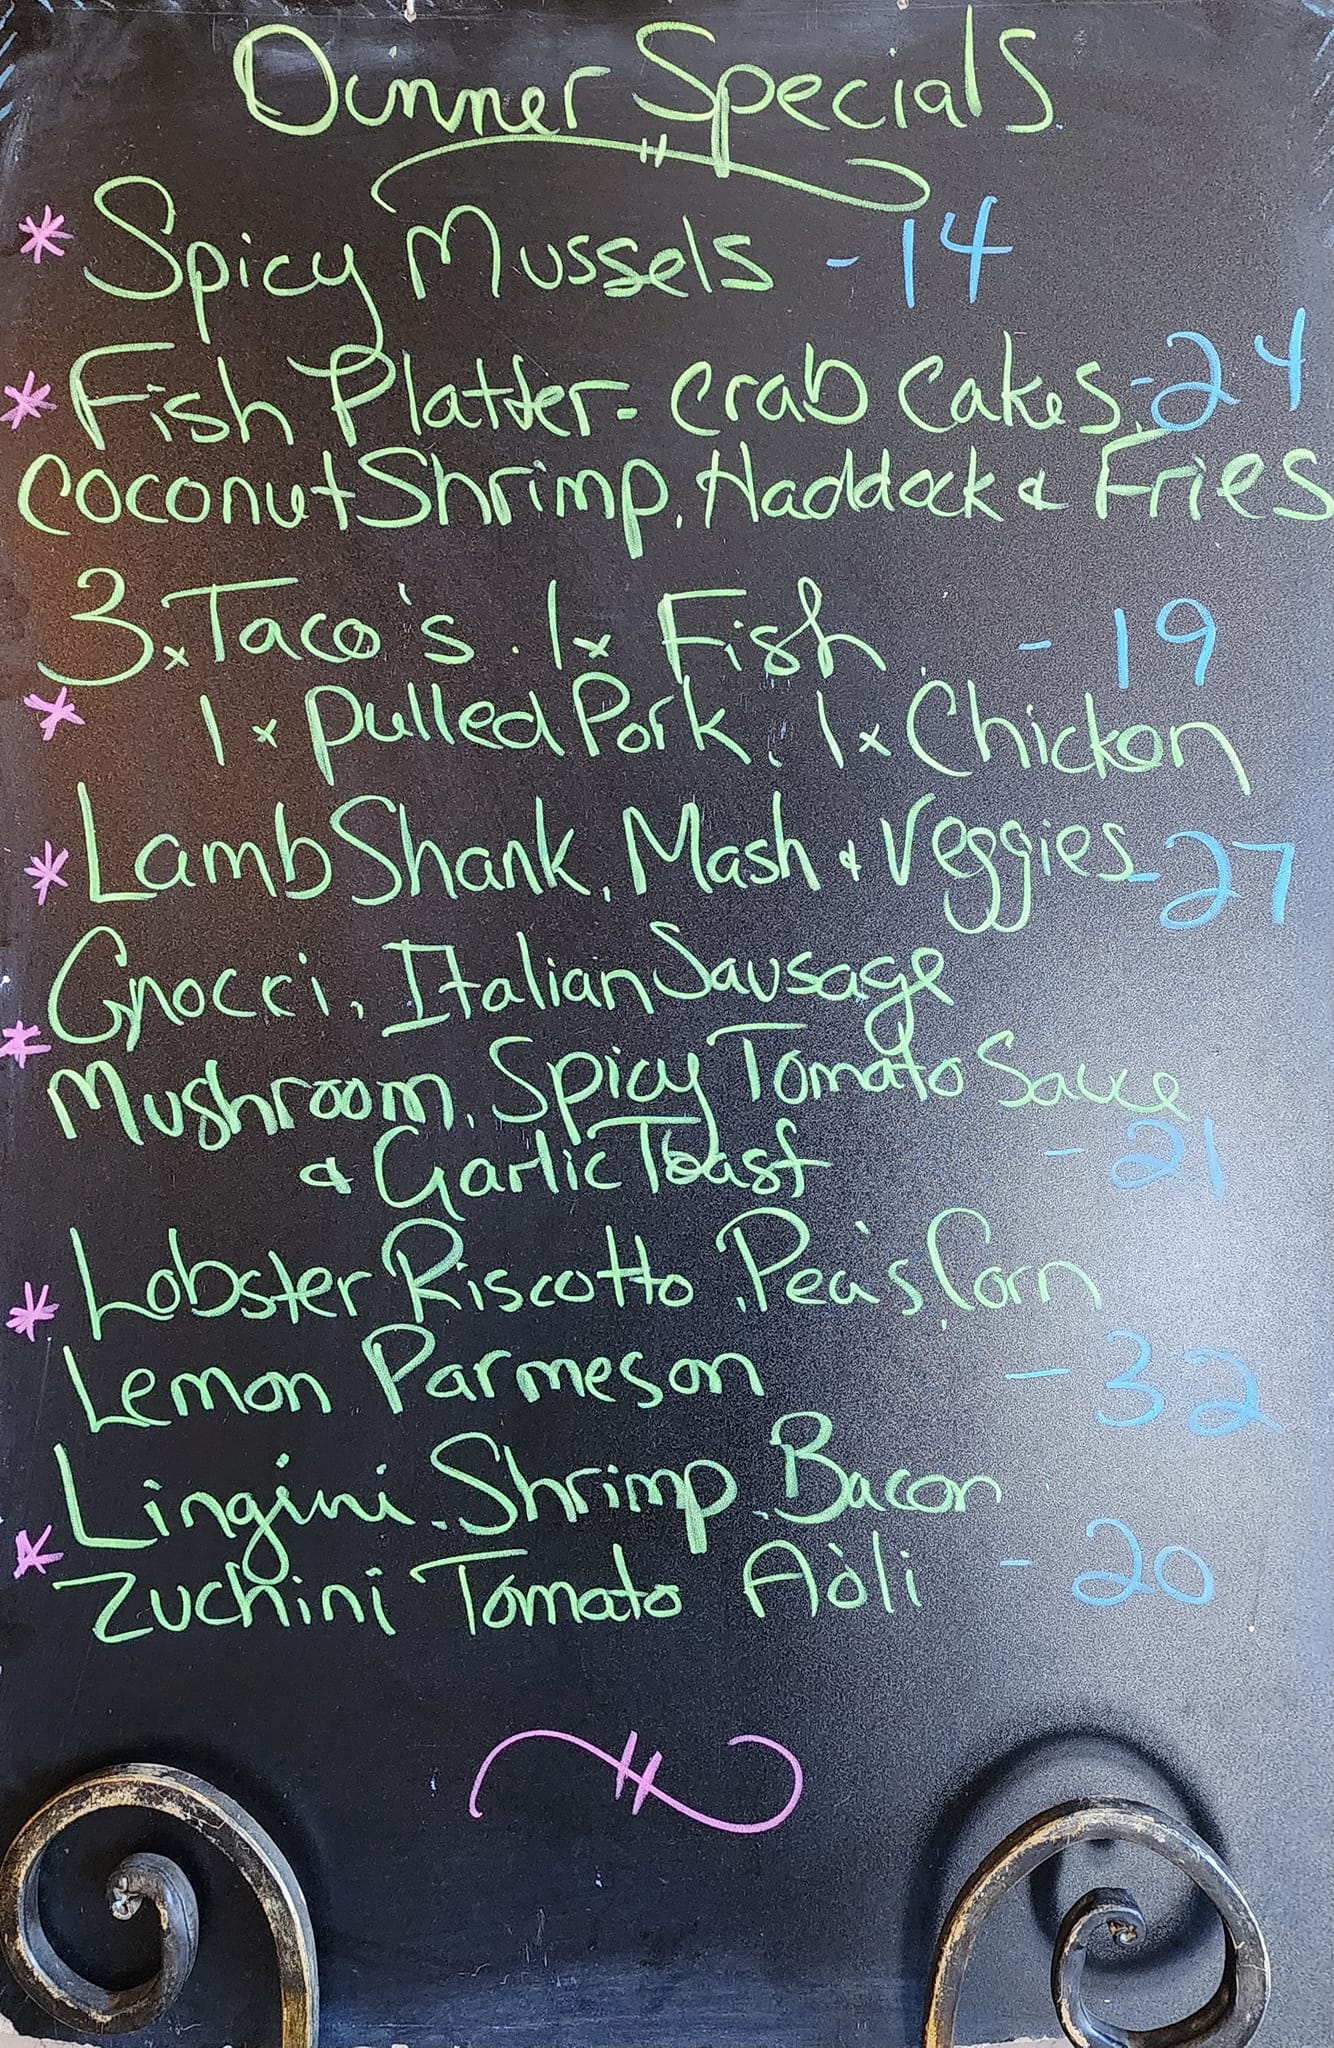 Dinner Specials
* Spicy Mussels - 14
* Fish Platter - Crab Cakes, - 24
Coconut Shrimp, Haddock & Fries
3x Taco's. 1x Fish - 19
* 1x Pulled Pork, 1x Chicken
* Lamb Shank, Mash & Veggies - 27
Gnocci, Italian Sausage
* Mushroom, Spicy Tomato Sauce
& Garlic Toast - 21
* Lobster Riscotto, Pea's, Corn
Lemon Parmeson - 32
Lingini, Shrimp, Bacon
* Zuchini Tomato Aoli - 20